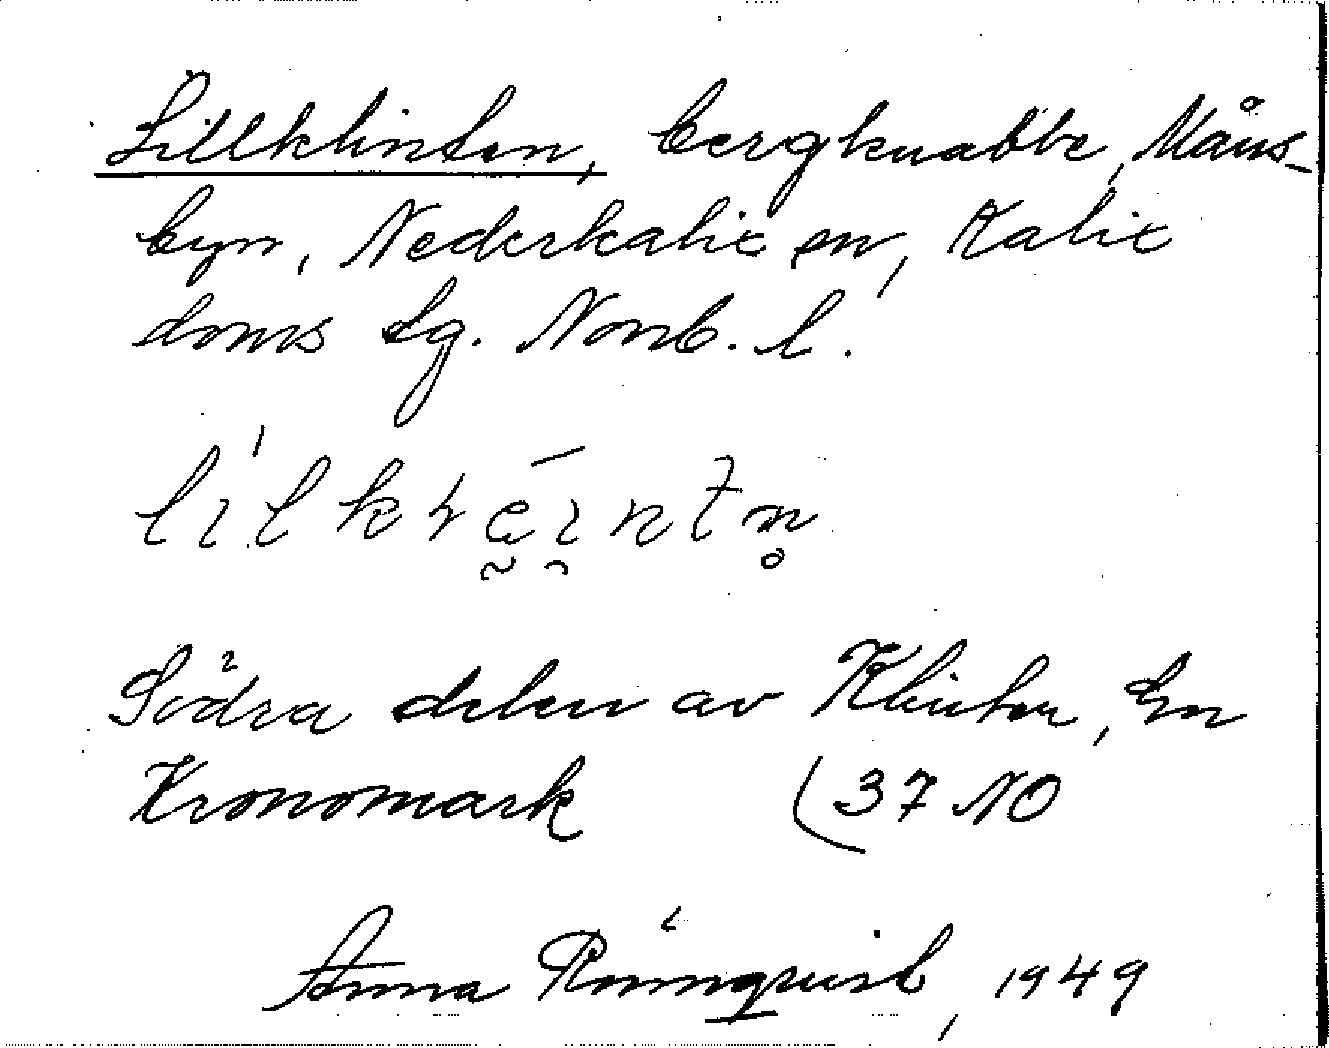 Lillklinten, bergknabbe, Måns-
byn, Nederkalix sn, Kalix
doms tg. Norrb. l.
Södra delen av Klinten, En
Kronomark (37 NO
Anna Rönnqvist, 1949